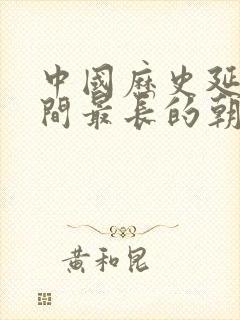 中國歷史延
間最長的朝
黃和昆